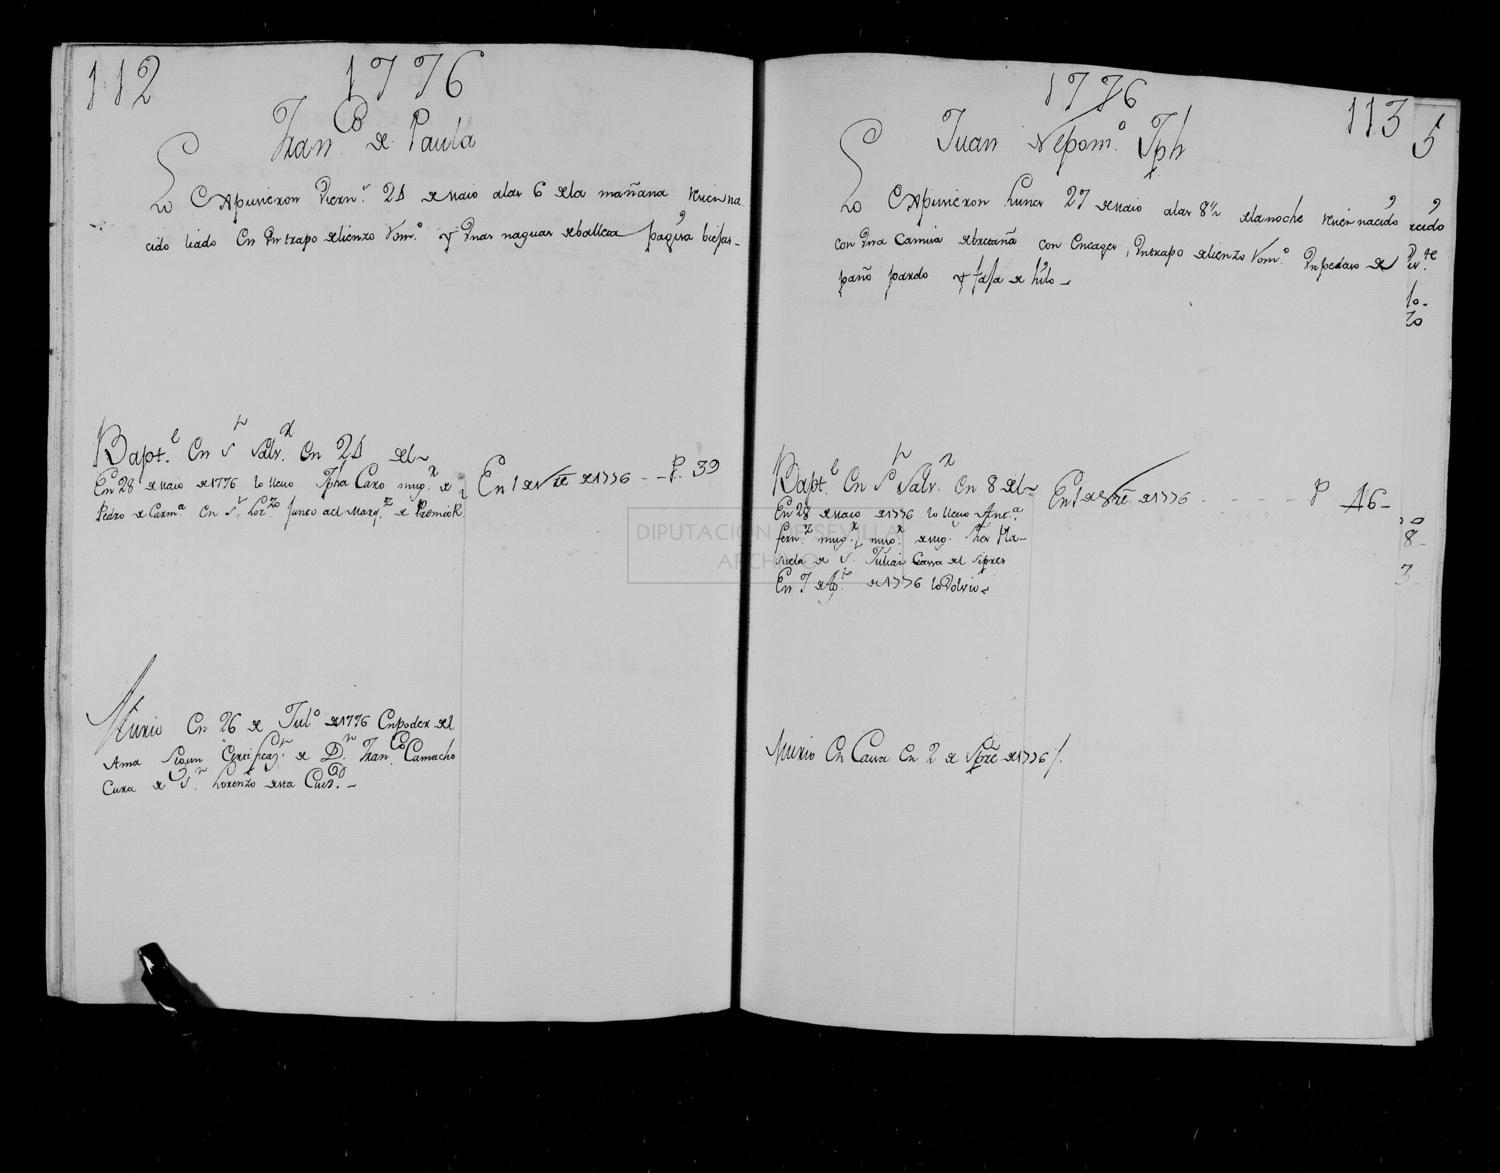 112 1776
Fran.co de Paula
Lo Expusieron Viern.s 24 de Maio a las 6 de la mañana recien na
cido liado En Un trapo de lienzo Vom.o y Unas naguas de balleta
Bapt.e En S.n Salv.r En 24 del
En 28 de Maio de 1776 lo llevo Jpha Caro mug.r de
Pedro de Carm.a En S.n Lor.zo junto a el Marq.z de
En 1 de de 1776 - - P. 39
Murio En 26 de Jul.o de 1776 En poder del
Ama Segun Certificaz.n de D.n Fran.co Camacho
Cura de S.n Lorenzo de esta Ciud.d -
1776 113
Juan Nepom.o Jph
Lo Expusieron Lunes 27 de Maio a las 8½ de la noche recien nacido
con Una Camisa de bretaña con Encages, Un trapo de lienzo Vom.o Un pedaso de
paño pardo y faja de hilo -
Bapt.e En S.n Salv.r En 8 del
En 28 de Maio de 1776 lo llevo Ant.a
fern.z mug.r
de S.n Julian Casa del
En 7 de Ag.to de 1776 lo Volvio
En 1 de de 1776 - - - - P 46 -
Murio En Casa En 2 de Spre de 1776
5
cido
8
3
DIPUTACION DE SEVILLA
ARCHIVO